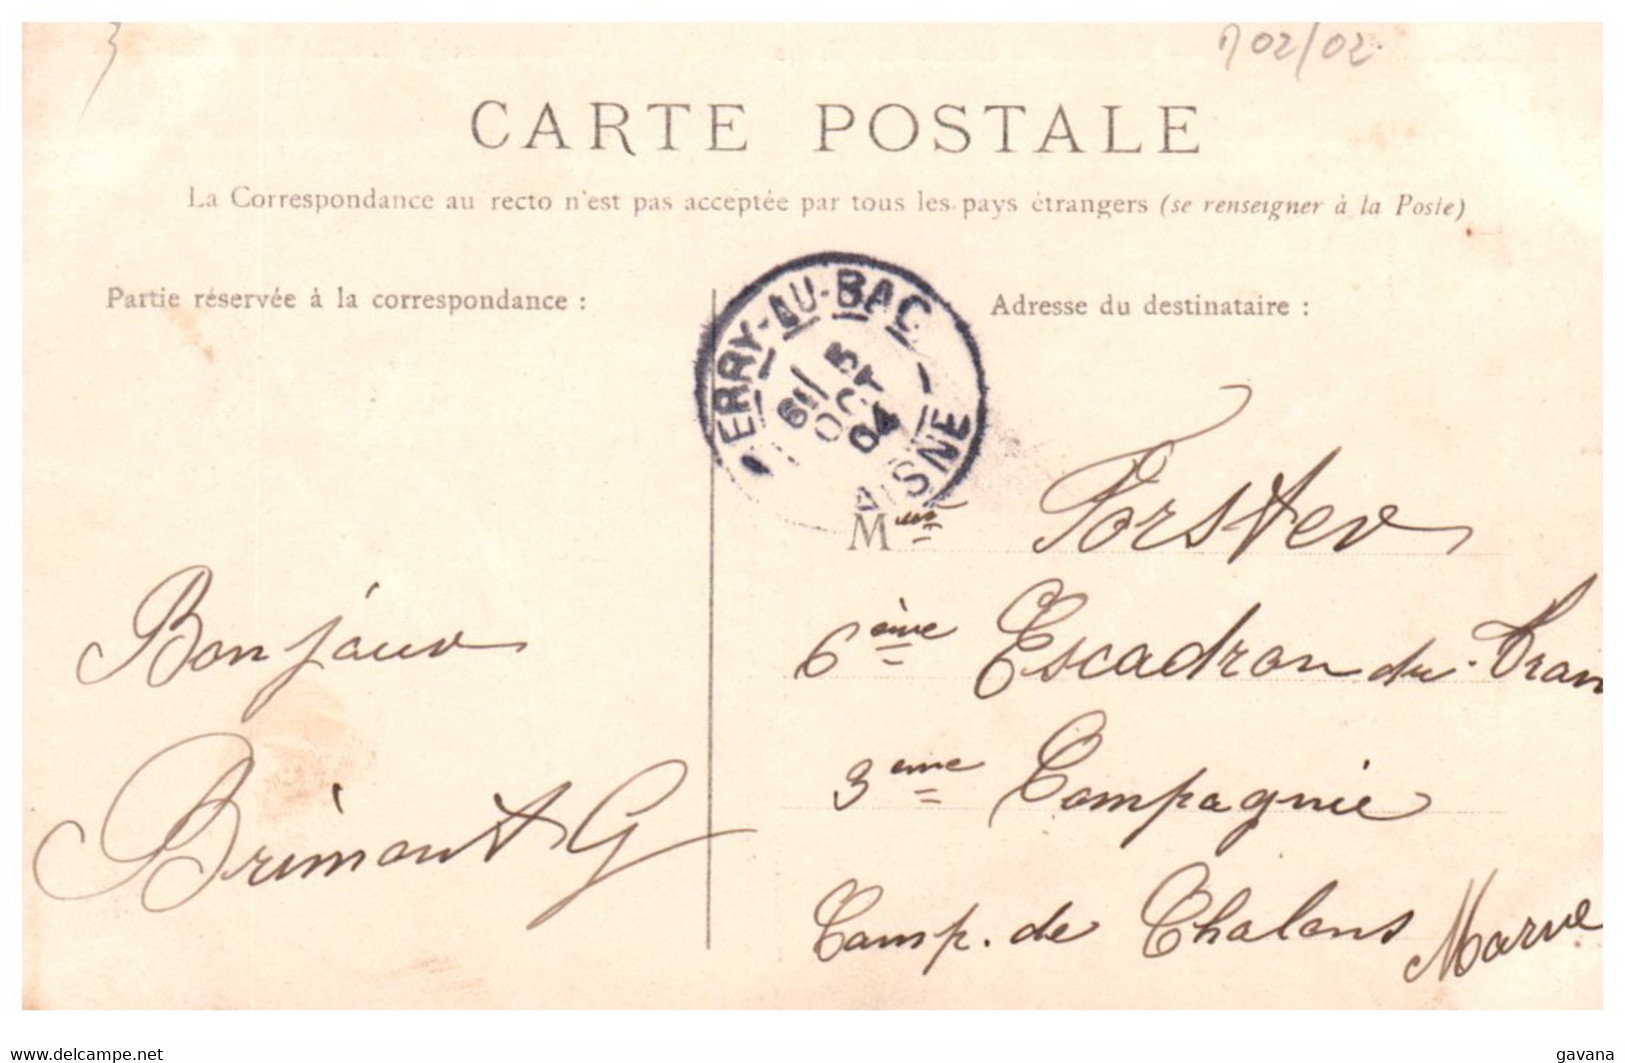 702/02
CARTE POSTALE
La Correspondance au recto n'est pas acceptée par tous les pays étrangers (se renseigner à la Poste)
Partie réservée à la correspondance :
Adresse du destinataire :
ERRY-AU-BAC
5
OCT
04
AISNE
M
Forster
6ème Escadron du Tran
3eme Compagnie
Camp. de Chalons Marne
Bonjour
Brimont G
www.delcampe.net
gavana